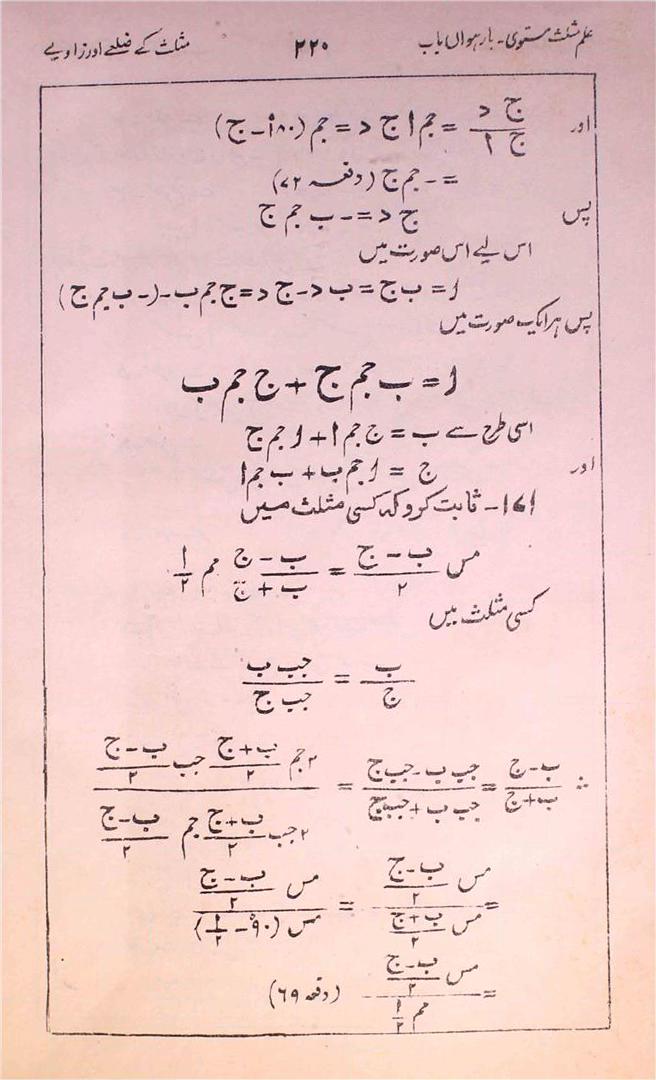 علم مثلث مستوی۔ بارھواں باب ۲۲۰ مثلث کے ضلعے اور زاویے
اور ج د / ج ا = جم ا ج د = جم (۱۸۰° - ج)
= - جم ج (دفعہ ۷۲)
پس ج د = - ب جم ج
اس لیے اس صورت میں
ا = ب ج = ب د - ج د = ج جم ب - (- ب جم ج)
پس ہر ایک صورت میں
ا = ب جم ج + ج جم ب
اسی طرح سے ب = ج جم ا + ا جم ج
اور ج = ا جم ب + ب جم ا
۱۶۱- ثابت کرو کہ کسی مثلث میں
مس (ب - ج)/۲ = (ب - ج)/(ب + ج) مم ا/۲
کسی مثلث میں
ب / ج = جب ب / جب ج
∴ (ب - ج)/(ب + ج) = (جب ب - جب ج)/(جب ب + جب ج) = (۲ جم (ب + ج)/۲ جب (ب - ج)/۲) / (۲ جب (ب + ج)/۲ جم (ب - ج)/۲)
= (مس (ب - ج)/۲) / (مس (ب + ج)/۲) = (مس (ب - ج)/۲) / (مس (۹۰° - ا/۲))
= (مس (ب - ج)/۲) / (مم ا/۲) (دفعہ ۶۹)